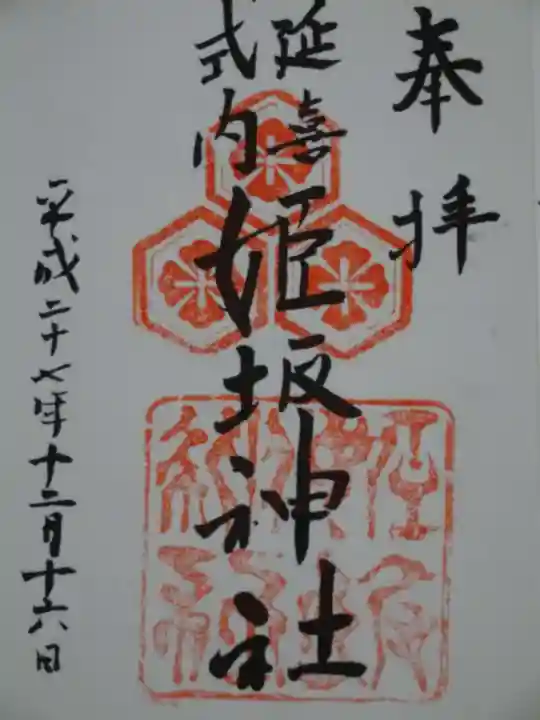 奉拝
延喜
式内
姫坂神社
平成二十七年十二月十六日